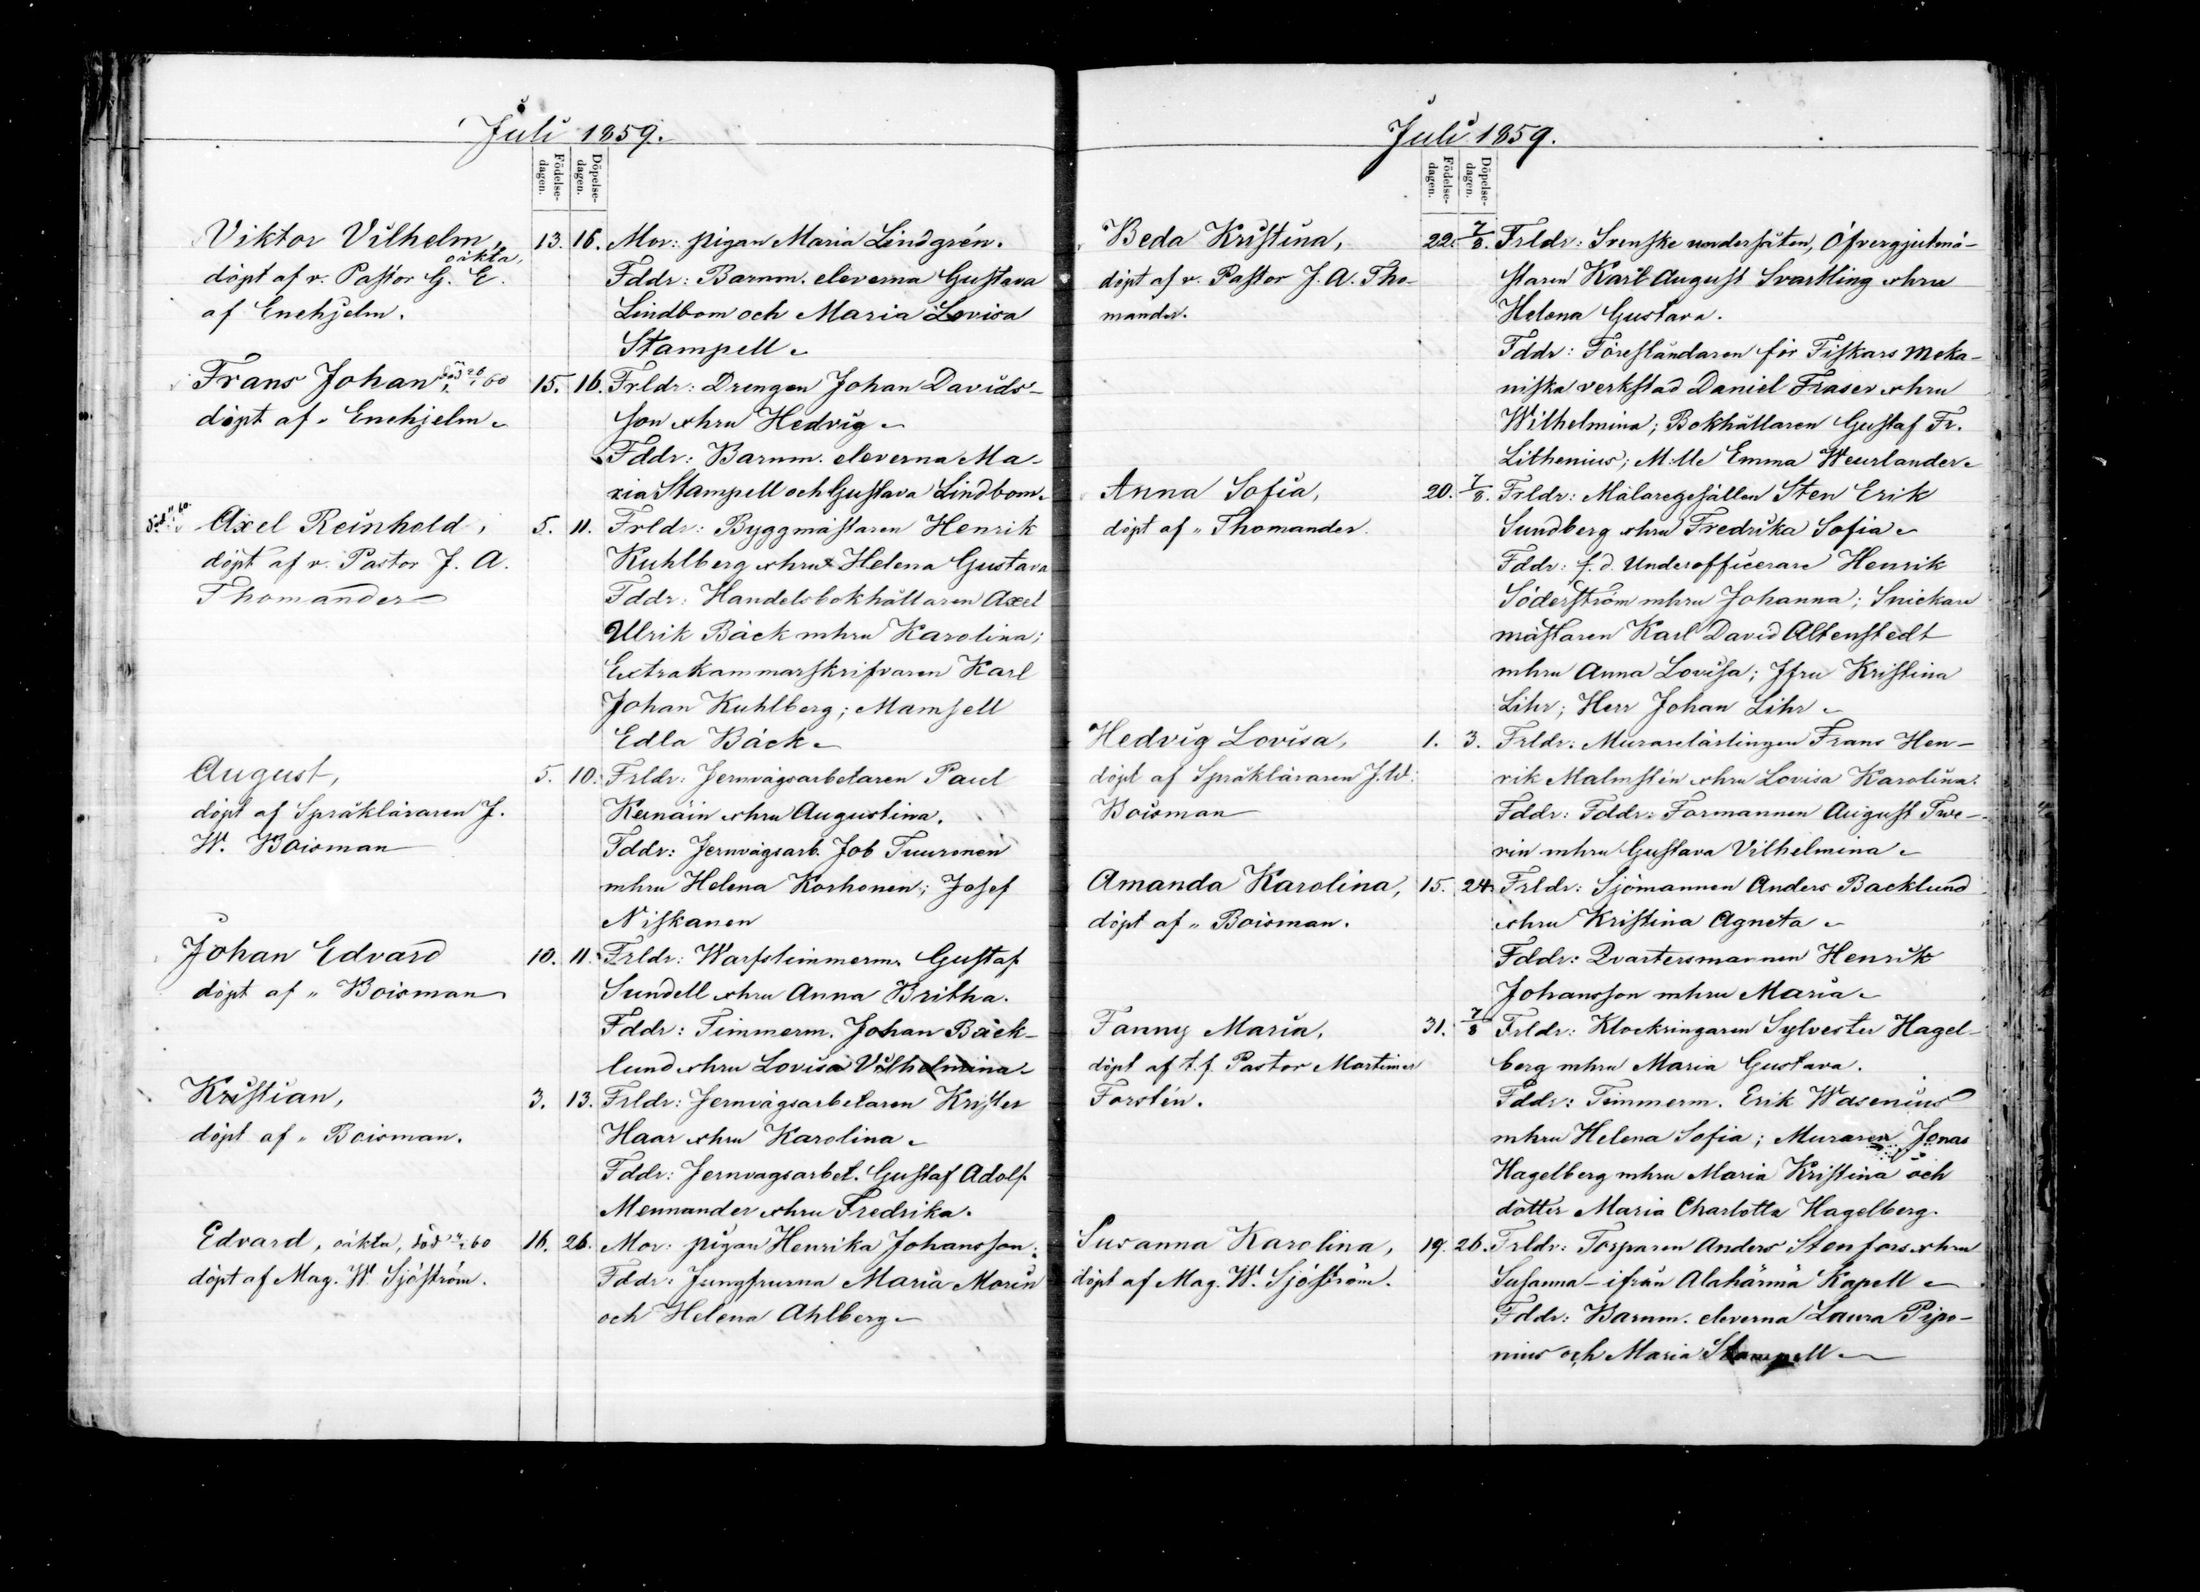 Juli 1859.
Födelse-dagen.
Döpelse-dagen.
Viktor Vilhelm,
oäkta,
döpt af v. Pastor G. E.
af Enehjelm.
13. 16.
Mor: pigan Maria Lindgrén.
Fddr: Barnm. eleverna Gustava
Lindbom och Maria Lovisa
Stampell
Frans Johan, död 60
döpt af " Enehjelm
15. 16.
Frldr: Drengen Johan Davids-
son o hru Hedvig
Fddr: Barnm. eleverna Ma-
ria Stampell och Gustava Lindbom
död 60
Axel Reinhold,
döpt af v. Pastor J. A.
Thomander
5. 11.
Frldr: Byggmästaren Henrik
Kuhlberg o hru Helena Gustava
Fddr: Handelsbokhållaren Axel
Ulrik Bäck mhru Karolina;
Extrakammarskrifvaren Karl
Johan Kuhlberg; Mamsell
Edla Bäck
August,
döpt af Språkläraren J.
W. Boisman
5. 10.
Frldr: Jernvägsarbetaren Paul
Keinäin o hru Augustina.
Fddr: Jernvägsarb. Job Tuuronen
mhru Helena Korhonen; Josef
Niskanen
Johan Edvard
döpt af " Boisman
10. 11.
Frldr: Warfstimmerm. Gustaf
Sundell o hru Anna Britha.
Fddr: Timmerm. Johan Bäck-
lund o hru Lovisa Vilhelmina
Kristian,
döpt af " Boisman.
3. 13.
Frldr: Jernvägsarbetaren Krister
Haar o hru Karolina
Fddr: Jernvagsarbet. Gustaf Adolf
Mennander o hru Fredrika.
Edvard, oäkta, död 60
döpt af Mag. W. Sjöström.
16. 26.
Mor: pigan Henrika Johansson.
Fddr: Jungfrurna Maria Morin
och Helena Ahlberg
Juli 1859.
Födelse-dagen.
Döpelse-dagen.
Beda Kristina,
döpt af v. Pastor J. A. Tho-
mander.
22. 7/8.
Frldr: Svenske undersåten, Öfvergjutmä-
staren Karl August Svartling o hru
Helena Gustava.
Fddr: Föreståndaren för Fiskars Meka-
niska verkstad Daniel Fraser o hru
Wilhelmina; Bokhållaren Gustaf Fr.
Lithenius; M:lle Emma Weurlander
Anna Sofia,
döpt af " Thomander.
20. 7/8.
Frldr: Målaregesällen Sten Erik
Sundberg o hru Fredrika Sofia
Fddr: f. d. Underofficerare Henrik
Söderström mhru Johanna; Snickare
mästaren Karl David Altenstedt
mhru Anna Lovisa; Jfru Kristina
Lihr; Herr Johan Lihr
Hedvig Lovisa,
döpt af Språkläraren J. W.
Boisman
1. 3.
Frldr. Murarelärlingen Frans Hen-
rik Malmstén o hru Lovisa Karolina.
Fddr: Fddr: Formannen August Twe-
rin mhru Gustava Vilhelmina
Amanda Karolina,
döpt af " Boisman.
15. 24.
Frldr: Sjömannen Anders Backlund
o hru Kristina Agneta
Fddr: Qvartersmannen Henrik
Johansson mhru Maria
Fanny Maria,
döpt af t.f. Pastor Mortimer
Forstén.
31. 7/8
Frldr: Klockringaren Sylvester Hagel-
berg mhru Maria Gustava.
Fddr: Timmerm. Erik Wasenius
mhru Helena Sofia; Muraren Jonas
Hagelberg mhru Maria Kristina och
dotter Maria Charlotta Hagelberg.
Susanna Karolina,
döpt af Mag. W. Sjöström.
19. 26.
Frldr: Torparen Anders Stenfors o hru
Susanna - ifrån Alahärmä Kapell
Fddr: Barnm. eleverna Laura Pipo-
nius och Maria Stampell